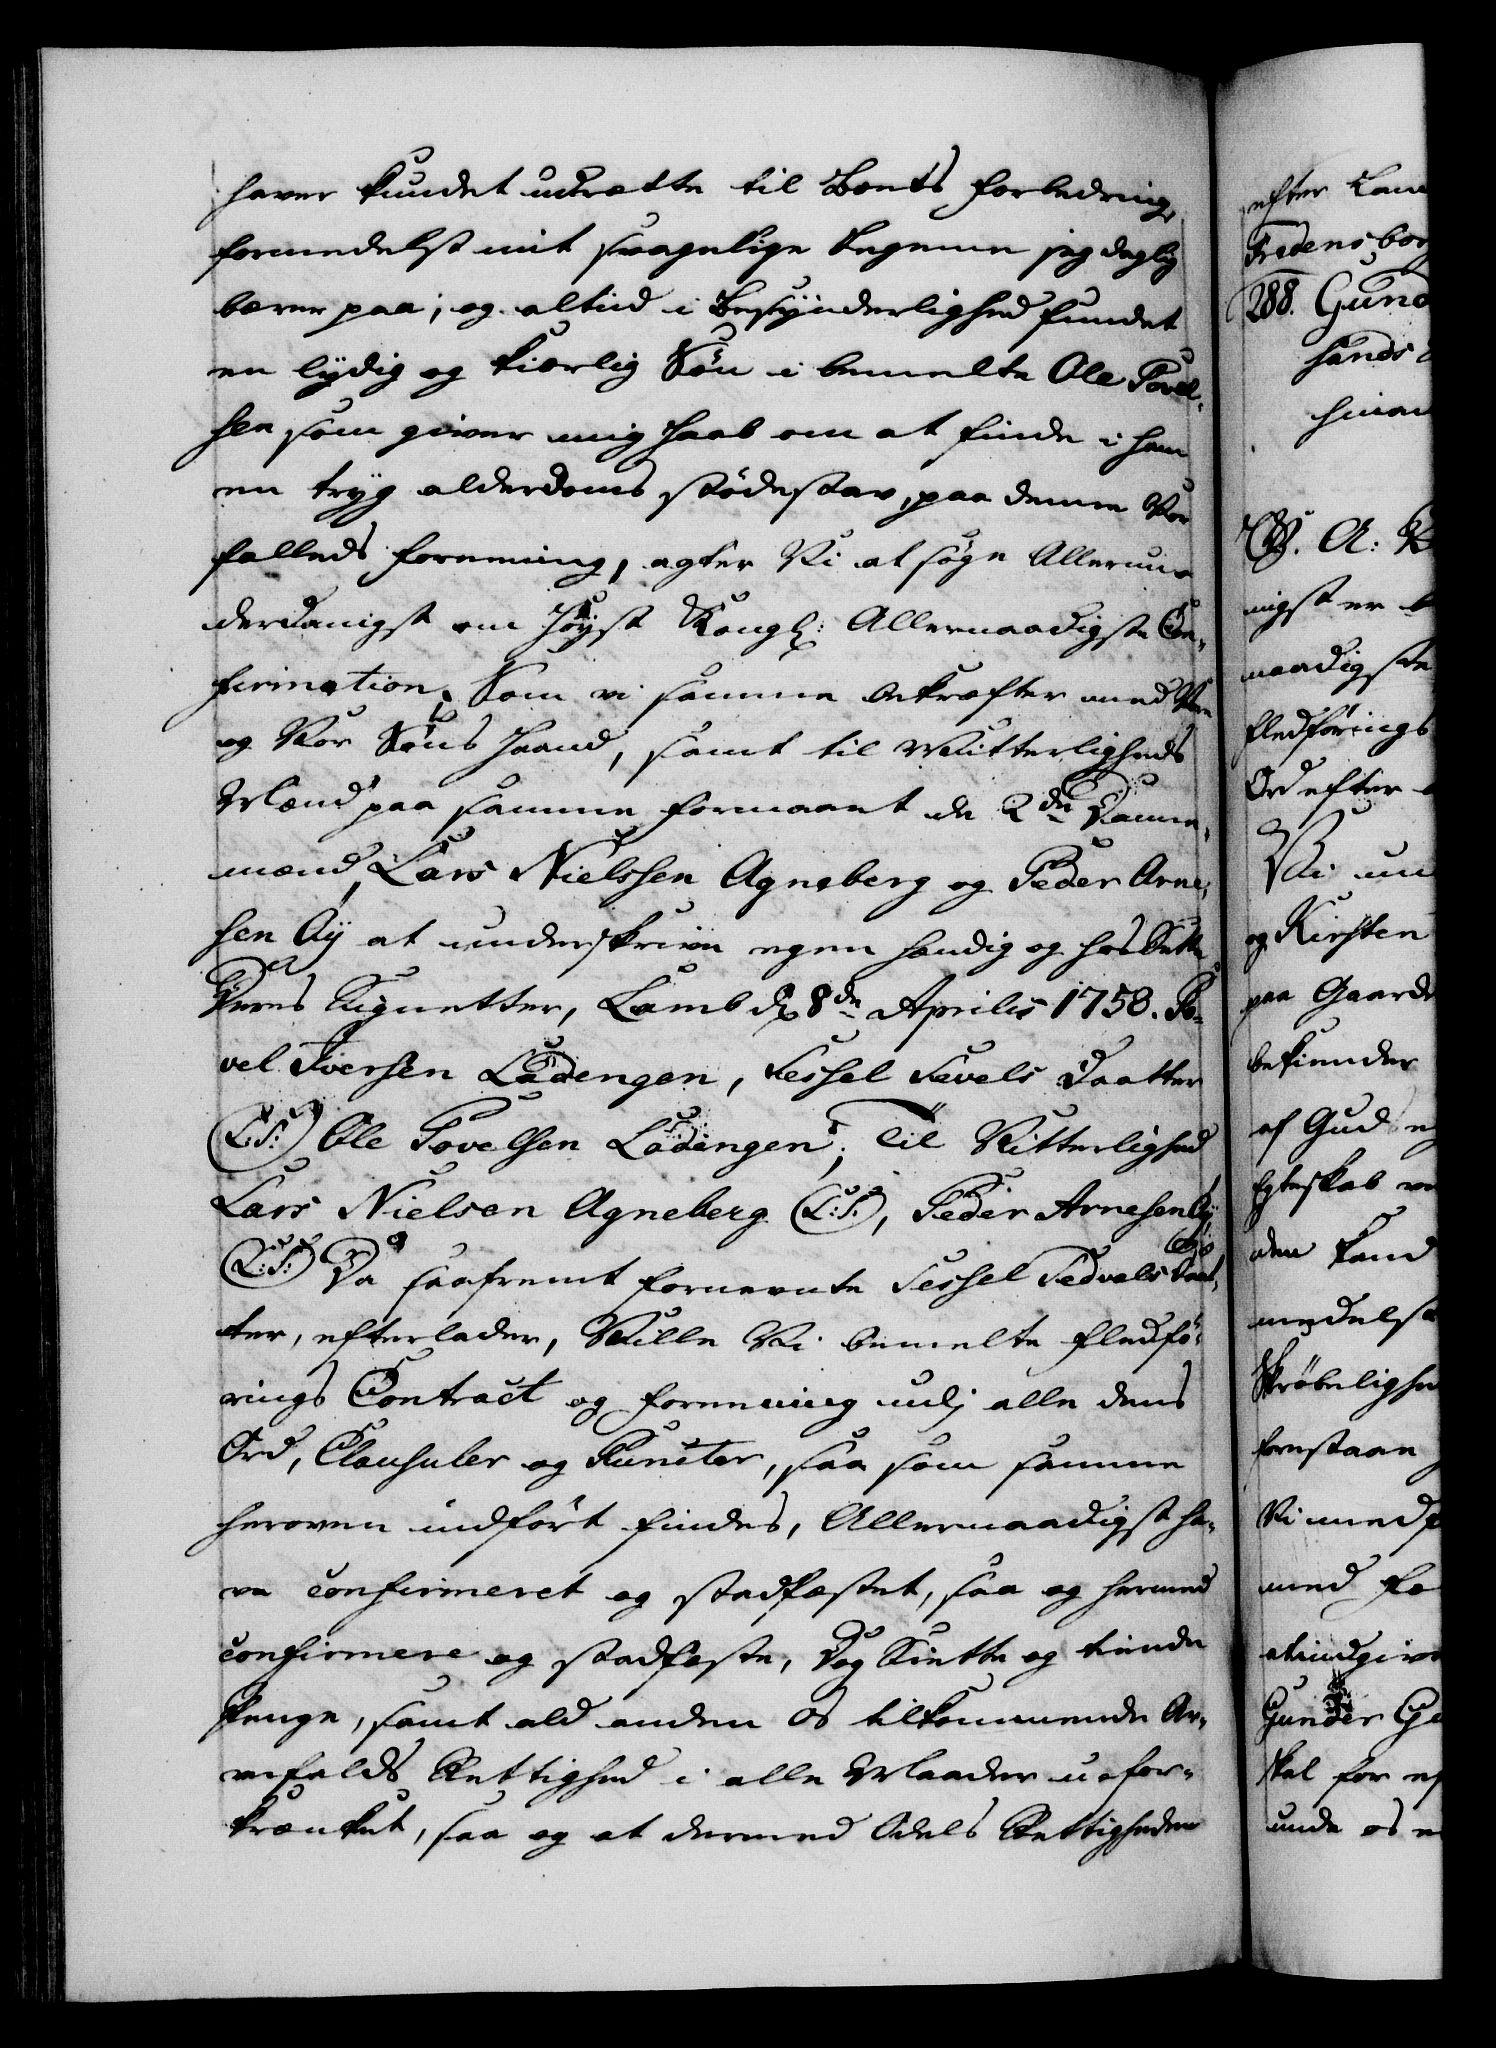 haver kundet udrætte til Boents forbedring,
formedelst mit svagelige Legeme jeg daglig
bærer paa; og altiid i Besynderlighed fundet
en lydig og kierlig Søn i bemelte Ole Povel-
sen som giver mig Haab om at finde i ham
en tryg alderdoms stødestav, paa denne Vor
fælleds Forening, agter Vi at søge Allerun-
derdanigst om Høyst Kongl: Allernaadigste Con-
firmation, Som vi samme bekræfter med Vor
og Vor Søns Haand, samt til Vitterligheds
Mænd paa samme formaaet de 2de Danne-
mænd, Lars Nielssen Agneberg og Peder Arne-
sen Ay at underskrive egenhændig og hos Sætte
Deres Signetter, Lamb d: 8de Aprilis 1758. Po-
vel Iversen Ladengen, Sessel Sevels Daatter
(L:S:) Ole Povelsen Ladengen; Til Vitterlighed
Lars Nielsen Agneberg (L:S:), Peder Arnesen Ay
(L:S:) Da saafremt fornevnte Sessel Sedvels Daat-
ter, efterlader, Ville Vi bemelte Fledfø-
rings Contract og Forening udj alle dens
Ord, Clausuler og Puncter, saa som samme
heroven indført findes, Allernaadigst ha-
ve confirmeret og stadfæstet, saa og hermed
confirmere og stadfæste, Dog Siette og tiende
Penge, samt ald anden Os tilkommende Ar-
vefalds Rettighed i alle Maader u-for-
krænket, saa og at dermed Odels Rettigheden
efter
Fredensborg
288. Gund
hands
hinan
C. A: K
nigst er
naadigste
Fledførings
Ord efter
Vi un
og Kirsten
paa Gaarde
bekiender
af Gud
Egteskab
den Land
medelst
Skrøbelighed
forestaae
Vi med
med
at indgive
Gunder
skal for
unde os